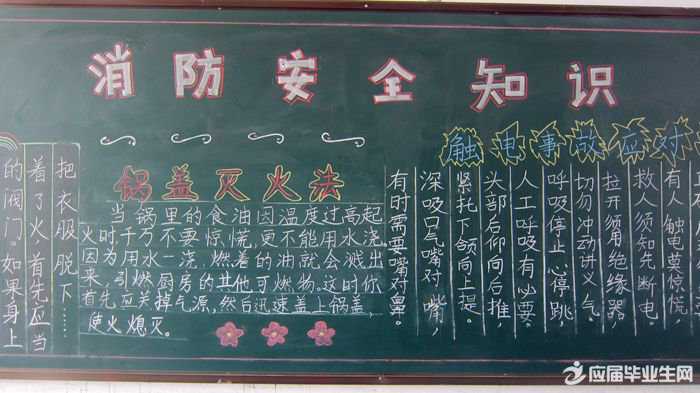 消防安全知识
的阀门。如果身上
着了火，首先应当
把衣服脱下……
锅盖灭火法
当锅里的食油因温度过高起
火时，千万不要惊慌，更不能用水浇。
因为用水一浇，燃着的油就会溅出
来，引燃厨房的其他可燃物。这时你
首先应关掉气源，然后迅速盖上锅盖，
使火熄灭。
触电事故应对
有人触电莫惊慌，
救人须知先断电。
拉开须用绝缘器，
切勿冲动讲义气。
呼吸停止心停跳，
人工呼吸有必要。
头部后仰向后推，
紧托下颌向上提。
深吸口气嘴对嘴，
有时需要嘴对鼻。
应届毕业生网